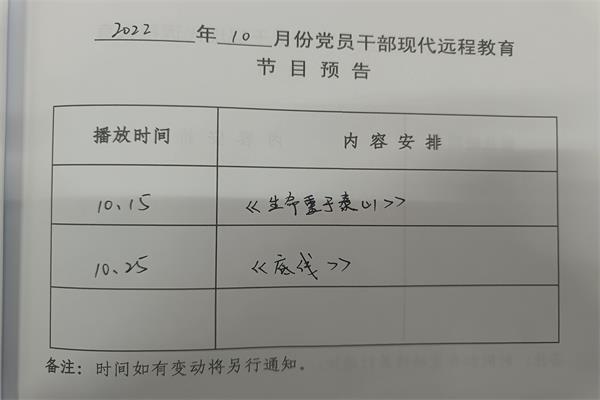 2022 年 10 月份党员干部现代远程教育
节目预告
播放时间 内容安排
10、15 《生命重于泰山》
10.25 《底线》
备注：时间如有变动将另行通知。